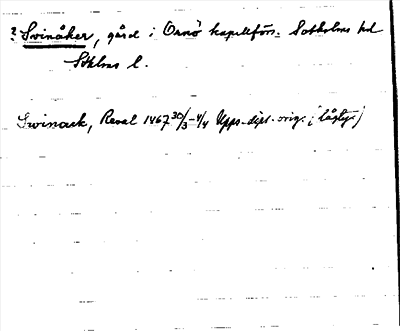 ? Svinåker, gård i Ornö kapellförs. Sotholms hd
Sthlms l.
Swinack, Reval 1467 30/3–4/4 Upps. dipl. orig. (lågty.)